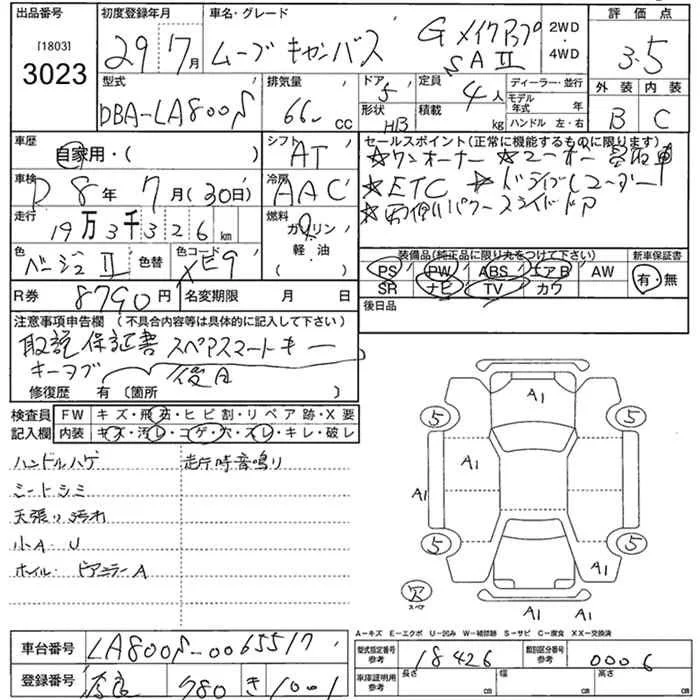 出品番号 初度登録年月 車名・グレード 評価点
[1803]
3023
29年7月 ムーブキャンバス Gメイクアップ SAⅡ 2WD・4WD 3.5
型式 排気量 ドア 定員 ディーラー・並行 外装 内装
DBA-LA800S 66 cc 5 4人 モデル年式 年 B C
形状 HB 積載 kg ハンドル 左・右
車歴 シフト セールスポイント(正常に機能するものに限ります)
自家用・( ) AT ☆ワンオーナー ☆ユーザー買取車
車検 冷房 ☆ETC ☆ドライブレコーダー
R8年7月(30日) AAC ☆両側パワースライドドア
走行 燃料
19万3千326km ガソリン・軽油
色 色替 色コード 装備品(純正品に限り丸をつけて下さい) 新車保証書
ベージュⅡ XE9 PS PW ABS エアB AW 有・無
SR ナビ TV カワ
R券 8790円 名変期限 月 日 後日品
注意事項申告欄 (不具合内容等は具体的に記入して下さい)
取説 保証書 スペアスマートキー
キーヲブ 後日
修復歴 有〔箇所 〕
検査員 FW キズ・飛石・ヒビ割・リペア跡・X要
記入欄 内装 キズ・汚レ・コゲ・穴・スレ・キレ・破レ
ハンドルハゲ 走行時音鳴り
シートシミ
天張り汚れ
小A・U
ホイル・ピアミラーA
A1
5 5
A1
A1
5 5
A1
欠
スペア
A1 A1
A−キズ E−エクボ U−凹み W−補修跡 S−サビ C−腐食 XX−交換済
車台番号 LA800S-0065517 型式指定番号 参考 18426 類別区分番号 参考 0006
登録番号 奈良 780 き 1001 車庫証明用 参考 長さ cm 幅 cm 高さ cm